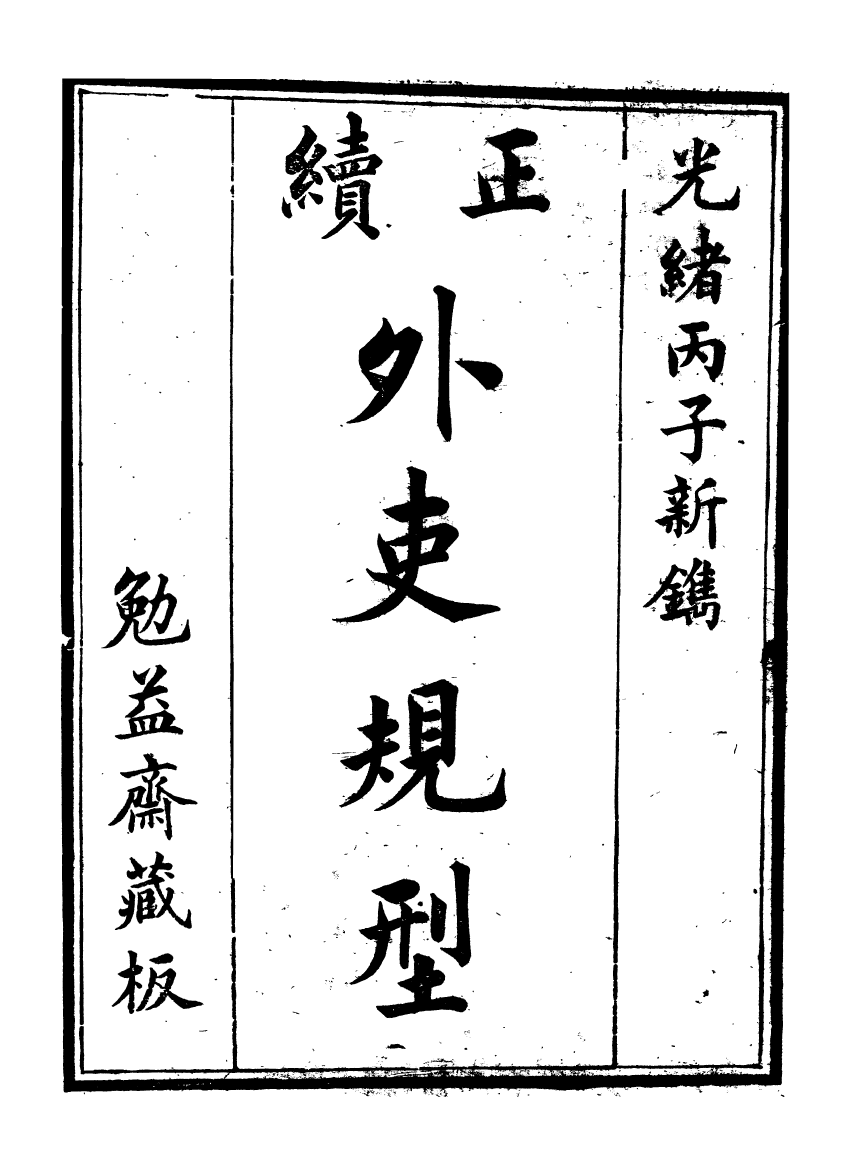 光緒丙子新鐫
正續
外吏規型
勉益齋藏板